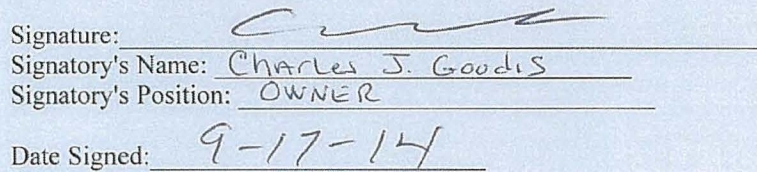 Signature:
Signatory's Name: Charles J. Goodis
Signatory's Position: OWNER
Date Signed: 9-17-14